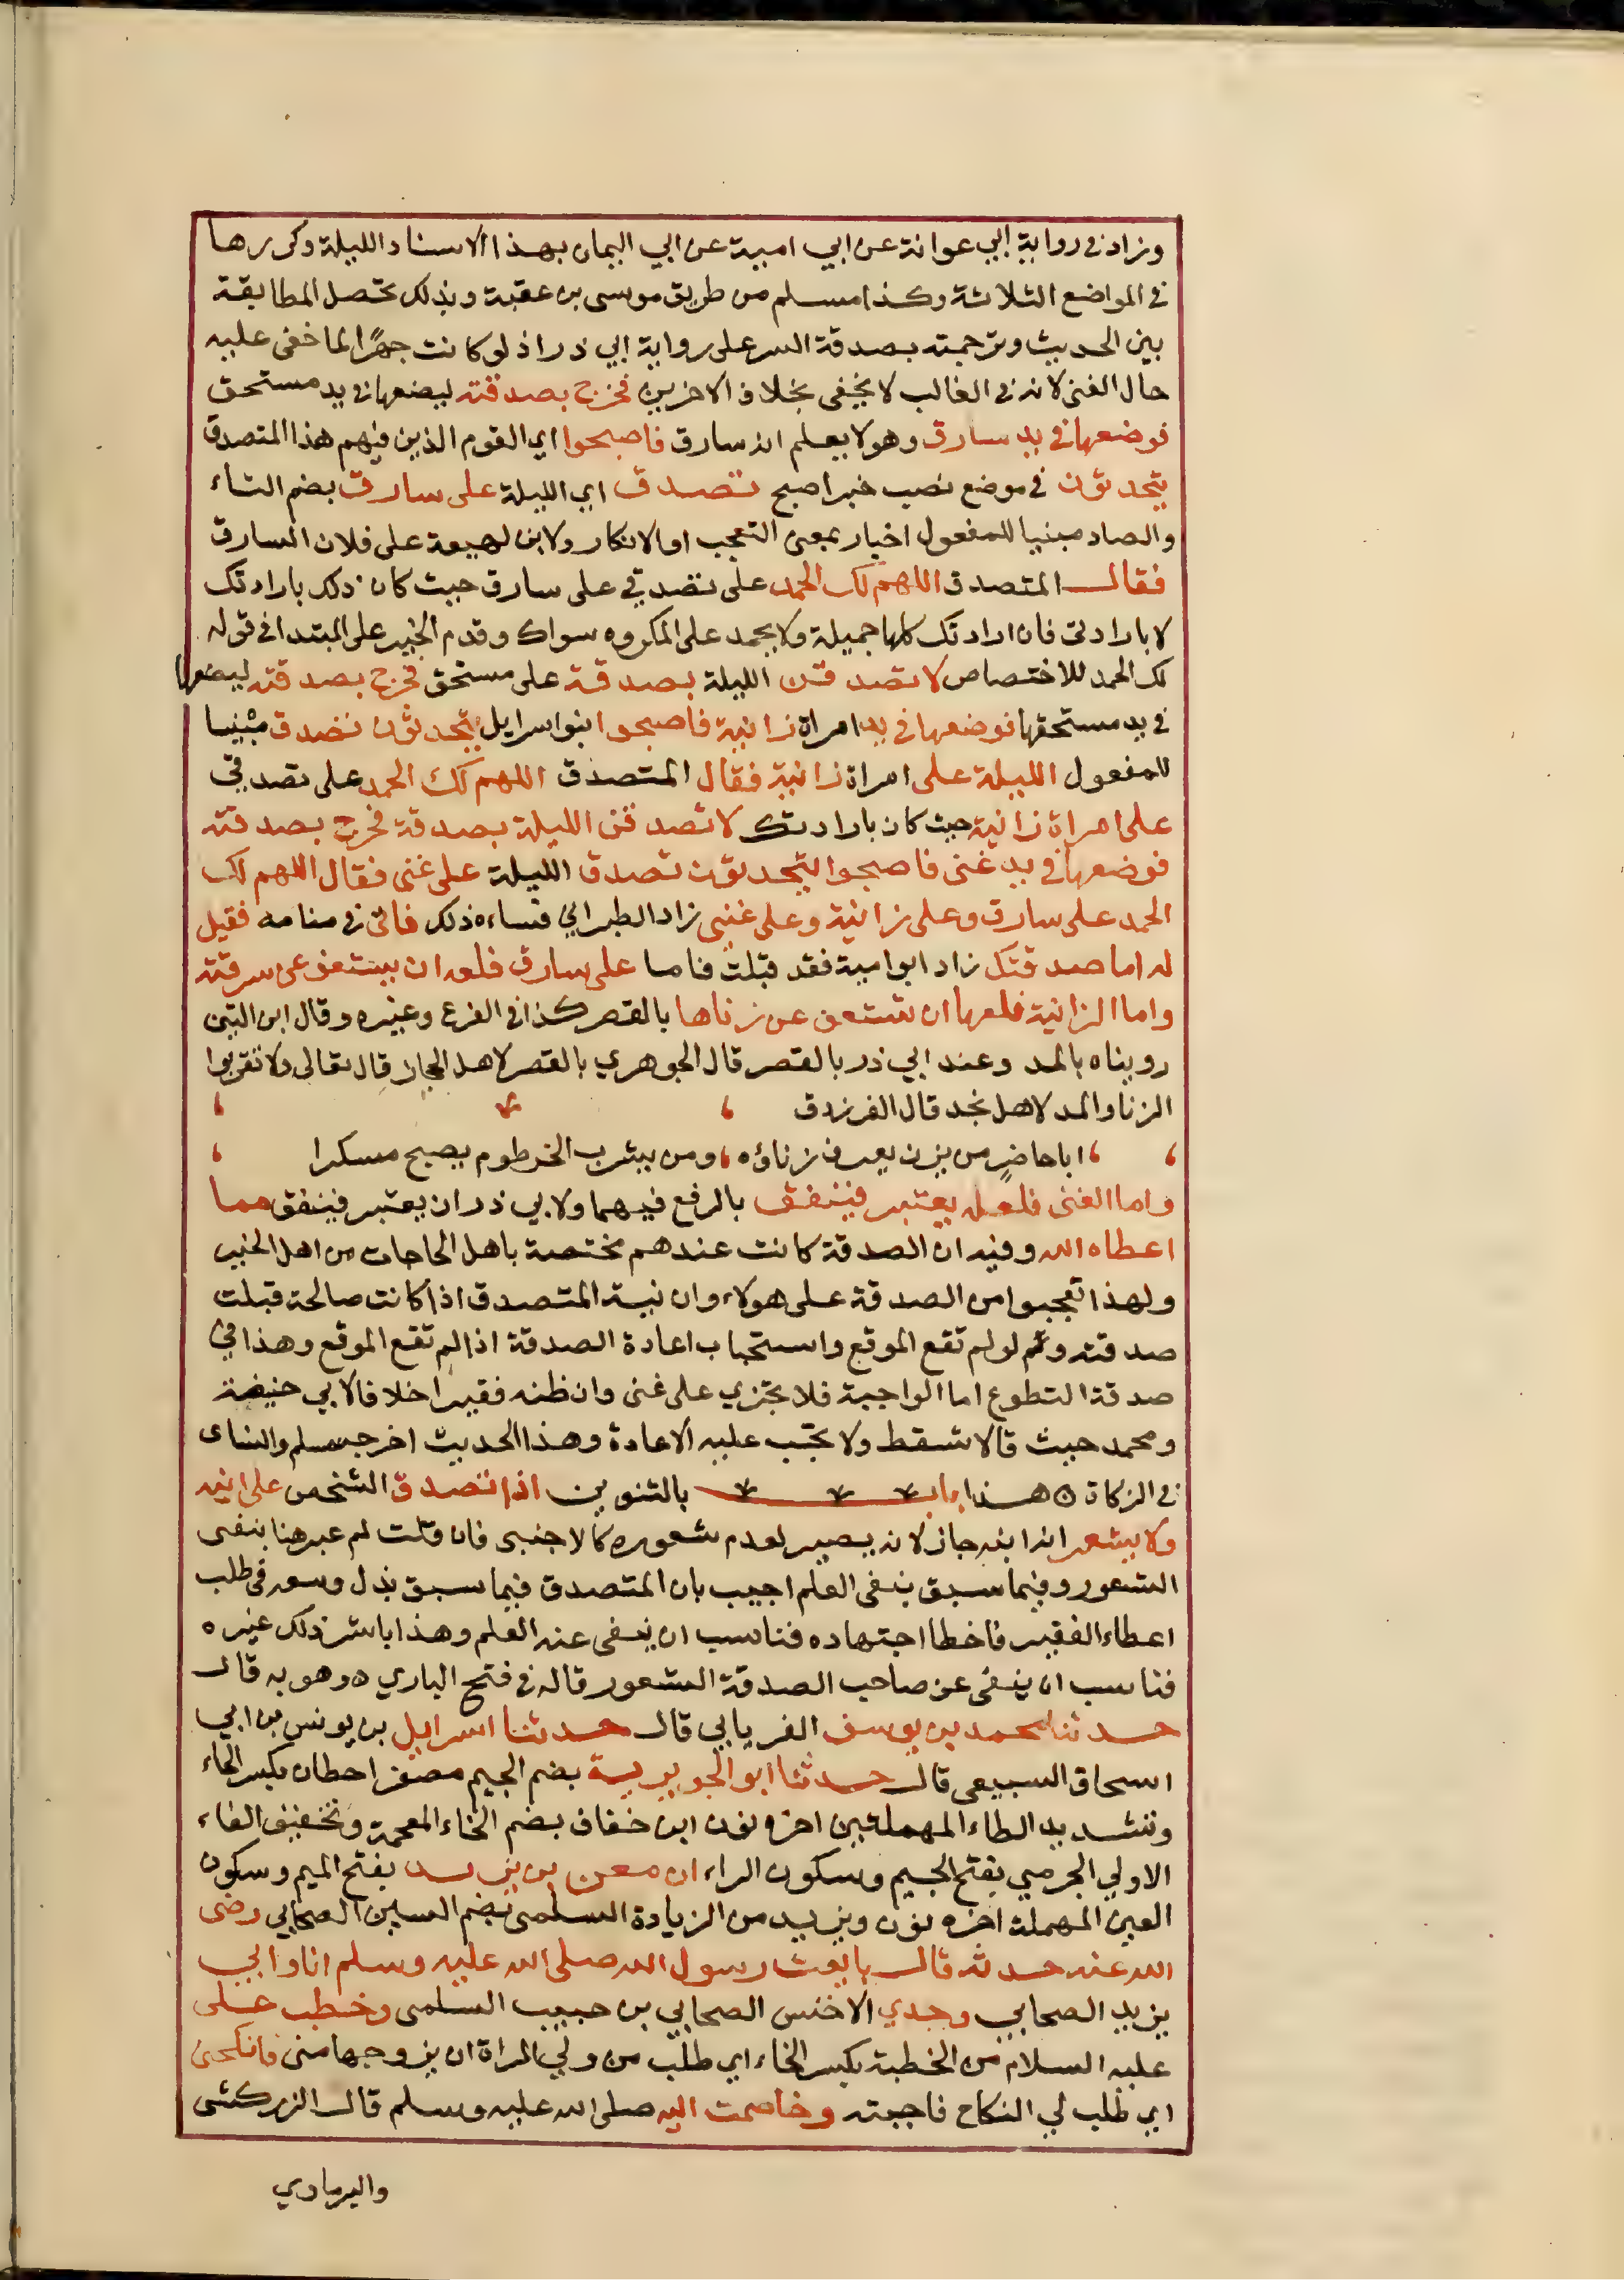 وزاد في رواية ابي عوانة عن ابي امية عن ابي اليمان بهذا الاسناد الليلة وكررها
في المواضع الثلاثة وكذا مسلم من طريق موسى بن عقبة وبذلك تحصل المطابقة
بين الحديث وترجمته بصدقة السر على رواية ابي ذر اذ لو كانت جهرًا لما خفى عليه
حال الغنى لانه في الغالب لا يخفى بخلاف الاخرين فخرج بصدقته ليضعها في يد مستحق
فوضعها في يد سارق وهو لا يعلم انه سارق فاصبحوا اي القوم الذين فيهم هذا المتصدق
يتحدثون في موضع نصب خبر اصبح تصدق اي الليلة على سارق بضم التاء
والصاد مبنيا للمفعول اخبار بمعنى التعجب او الانكار ولابن لهيعة على فلان السارق
فقال المتصدق اللهم لك الحمد على تصدقي على سارق حيث كان ذلك بارادتك
لا بارادتي فان ارادتك كلها جميلة ولا يحمد على المكروه سواك وقدم الخبر على المبتدا في قوله
لك الحمد للاختصاص لا تصدقن الليلة بصدقة على مستحق فخرج بصدقته ليضعها
في يد مستحقها فوضعها في يد امراة زانية فاصبحوا بنوا سرايل يتحدثون تصدق مبنيا
للمفعول الليلة على امراة زانية فقال المتصدق اللهم لك الحمد على تصدقي
على امراة زانية حيث كان بارادتك لا تصدقن الليلة بصدقة فخرج بصدقته
فوضعها في يد غنى فاصبحوا يتحدثون تصدق الليلة على غنى فقال اللهم لك
الحمد على سارق وعلى زانية وعلى غنى زاد الطبراني فساءه ذلك فاتى في منامه فقيل
له اما صدقتك زاد ابو امية فقد قبلت فاما على سارق فلعله ان يستعف عن سرقته
واما الزانية فلعلها ان تستعف عن زناها بالقصر كذا في الفرع وغيره وقال ابن التين
رويناه بالمد وعند ابي ذر بالقصر قال الجوهري بالقصر لاهل الحجاز قال تعالى ولا تقربوا
الزنا والمد لاهل نجد قال الفرزدق
ابا حاضرٍ من يزن يعرف زناؤه، ومن يشرب الخرطوم يصبح مسكرا
واما الغنى فلعله يعتبر فينفق بالرفع فيهما ولابي ذر ان يعتبر فينفق مما
اعطاه الله وفيه ان الصدقة كانت عندهم مختصة باهل الحاجات من اهل الخير
ولهذا تعجبوا من الصدقة على هولاء وان نية المتصدق اذا كانت صالحة قبلت
صدقته ولو لم تقع الموقع واستحباب اعادة الصدقة اذا لم تقع الموقع وهذا في
صدقة التطوع اما الواجبة فلا تجزي على غنى وان ظنه فقيرا خلافا لابي حنيفة
ومحمد حيث قالا تسقط ولا تجب عليه الاعادة وهذا الحديث اخرجه مسلم والنساى
في الزكاة ٥ هذا باب بالتنوين اذا تصدق الشخص على ابنه
ولا يشعر انه ابنه جاز لانه يصير لعدم شعوره كالاجنبى فان قلت لم عبر هنا بنفى
الشعور وفيما سبق بنفى العلم اجيب بان المتصدق فيما سبق بذل وسعه في طلب
اعطاء الفقير فاخطا اجتهاده فناسب ان ينفى عنه العلم وهذا باشر ذلك غيره
فناسب ان ينفى عن صاحب الصدقة الشعور قاله في فتح الباري ٥ وهو به قال
حدثنا محمد بن يوسف الفريابي قال حدثنا اسرايل بن يونس بن ابي
اسحاق السبيعى قال حدثنا ابو الجويرية بضم الجيم مصغرا حطان بكسر الحاء
وتشديد الطاء المهملتين اخره نون ابن خفاف بضم الخاء المعجمة وتخفيف الفاء
الاولي الجرمي بفتح الجيم وسكون الراء ان معن بن يزيد بفتح الميم وسكون
العين المهملة اخره نون ويزيد من الزيادة السلمى بضم السين الصحابي رضى
الله عنه حدثه قال بايعت رسول الله صلى الله عليه وسلم انا وابي
يزيد الصحابي وجدي الاخنس الصحابي بن حبيب السلمى وخطب على
عليه السلام من الخطبة بكسر الخاء اي طلب من ولي المراة ان يزوجها منى فانكحنى
اي طلب لي النكاح فاجبته وخاصمت اليه صلى الله عليه وسلم قال الزركشى
والبرماوي